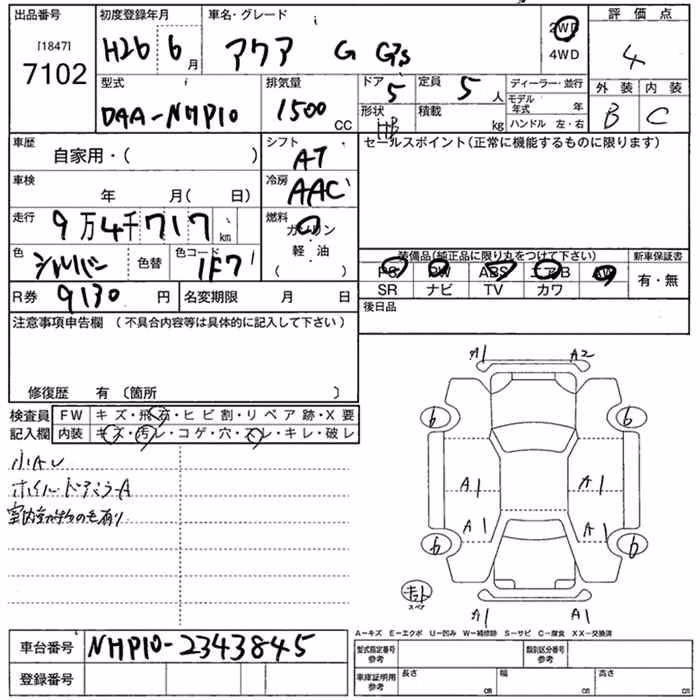 出品番号 初度登録年月 車名・グレード 評価点
[1847]
7102 H26 6月 アクア G G's 2WD 4WD 4
型式 排気量 ドア 定員 ディーラー・並行 外装 内装
DAA-NHP10 1500 CC 5 5人 モデル年式 年 B C
形状 HB 積載 kg ハンドル 左・右
車歴 自家用・( ) シフト AT セールスポイント(正常に機能するものに限ります)
車検 年 月( 日) 冷房 AAC
走行 9万4千717 km 燃料 ガソリン・軽油 ( )
色 シルバー 色替 色コード 1F7 装備品(純正品に限り丸をつけて下さい) 新車保証書
PS PW ABS エアB AW 有・無
SR ナビ TV カワ
R券 9130円 名変期限 月 日 後日品
注意事項申告欄 (不具合内容等は具体的に記入して下さい)
修復歴 有 〔箇所 〕
検査員 FW キズ・飛石・ヒビ割・リペア跡・X要
記入欄 内装 キズ・汚レ・コゲ・穴・スレ・キレ・破レ
小AU
ホイール・ドアミラーA
A1 A2
6 6
A1 A1
A1 A1
6 6
スペア
A1 A1
A−キズ E−エクボ U−凹み W−補修跡 S−サビ C−腐食 XX−交換済
車台番号 NHP10-2343845 型式指定番号 参考 類別区分番号 参考
登録番号 車庫証明用 参考 長さ cm 幅 cm 高さ cm